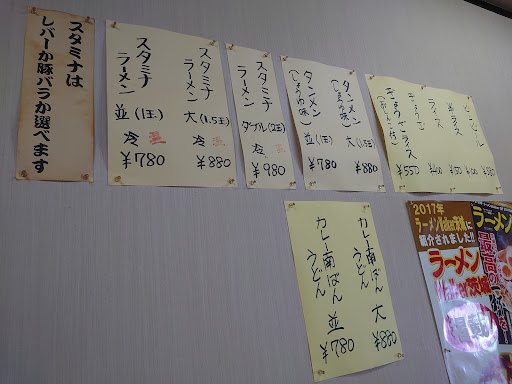 スタミナは
レバーか豚バラか選べます
スタミナ
ラーメン
大(1.5玉)
冷 温
¥880
スタミナ
ラーメン
並(1玉)
冷 温
¥780
スタミナ
ラーメン
ダブル(2玉)
冷 温
¥980
タンメン
(しょうゆ味)
大(1.5玉)
¥880
タンメン
(しょうゆ味)
並(1玉)
¥780
ライス
¥550
カレー南ばん
うどん
大
¥880
カレー南ばん
うどん
並
¥780
2017年
ラーメンWalker茨城に
紹介されました!!
ラーメン
Walker茨城
ラーメン
最高の